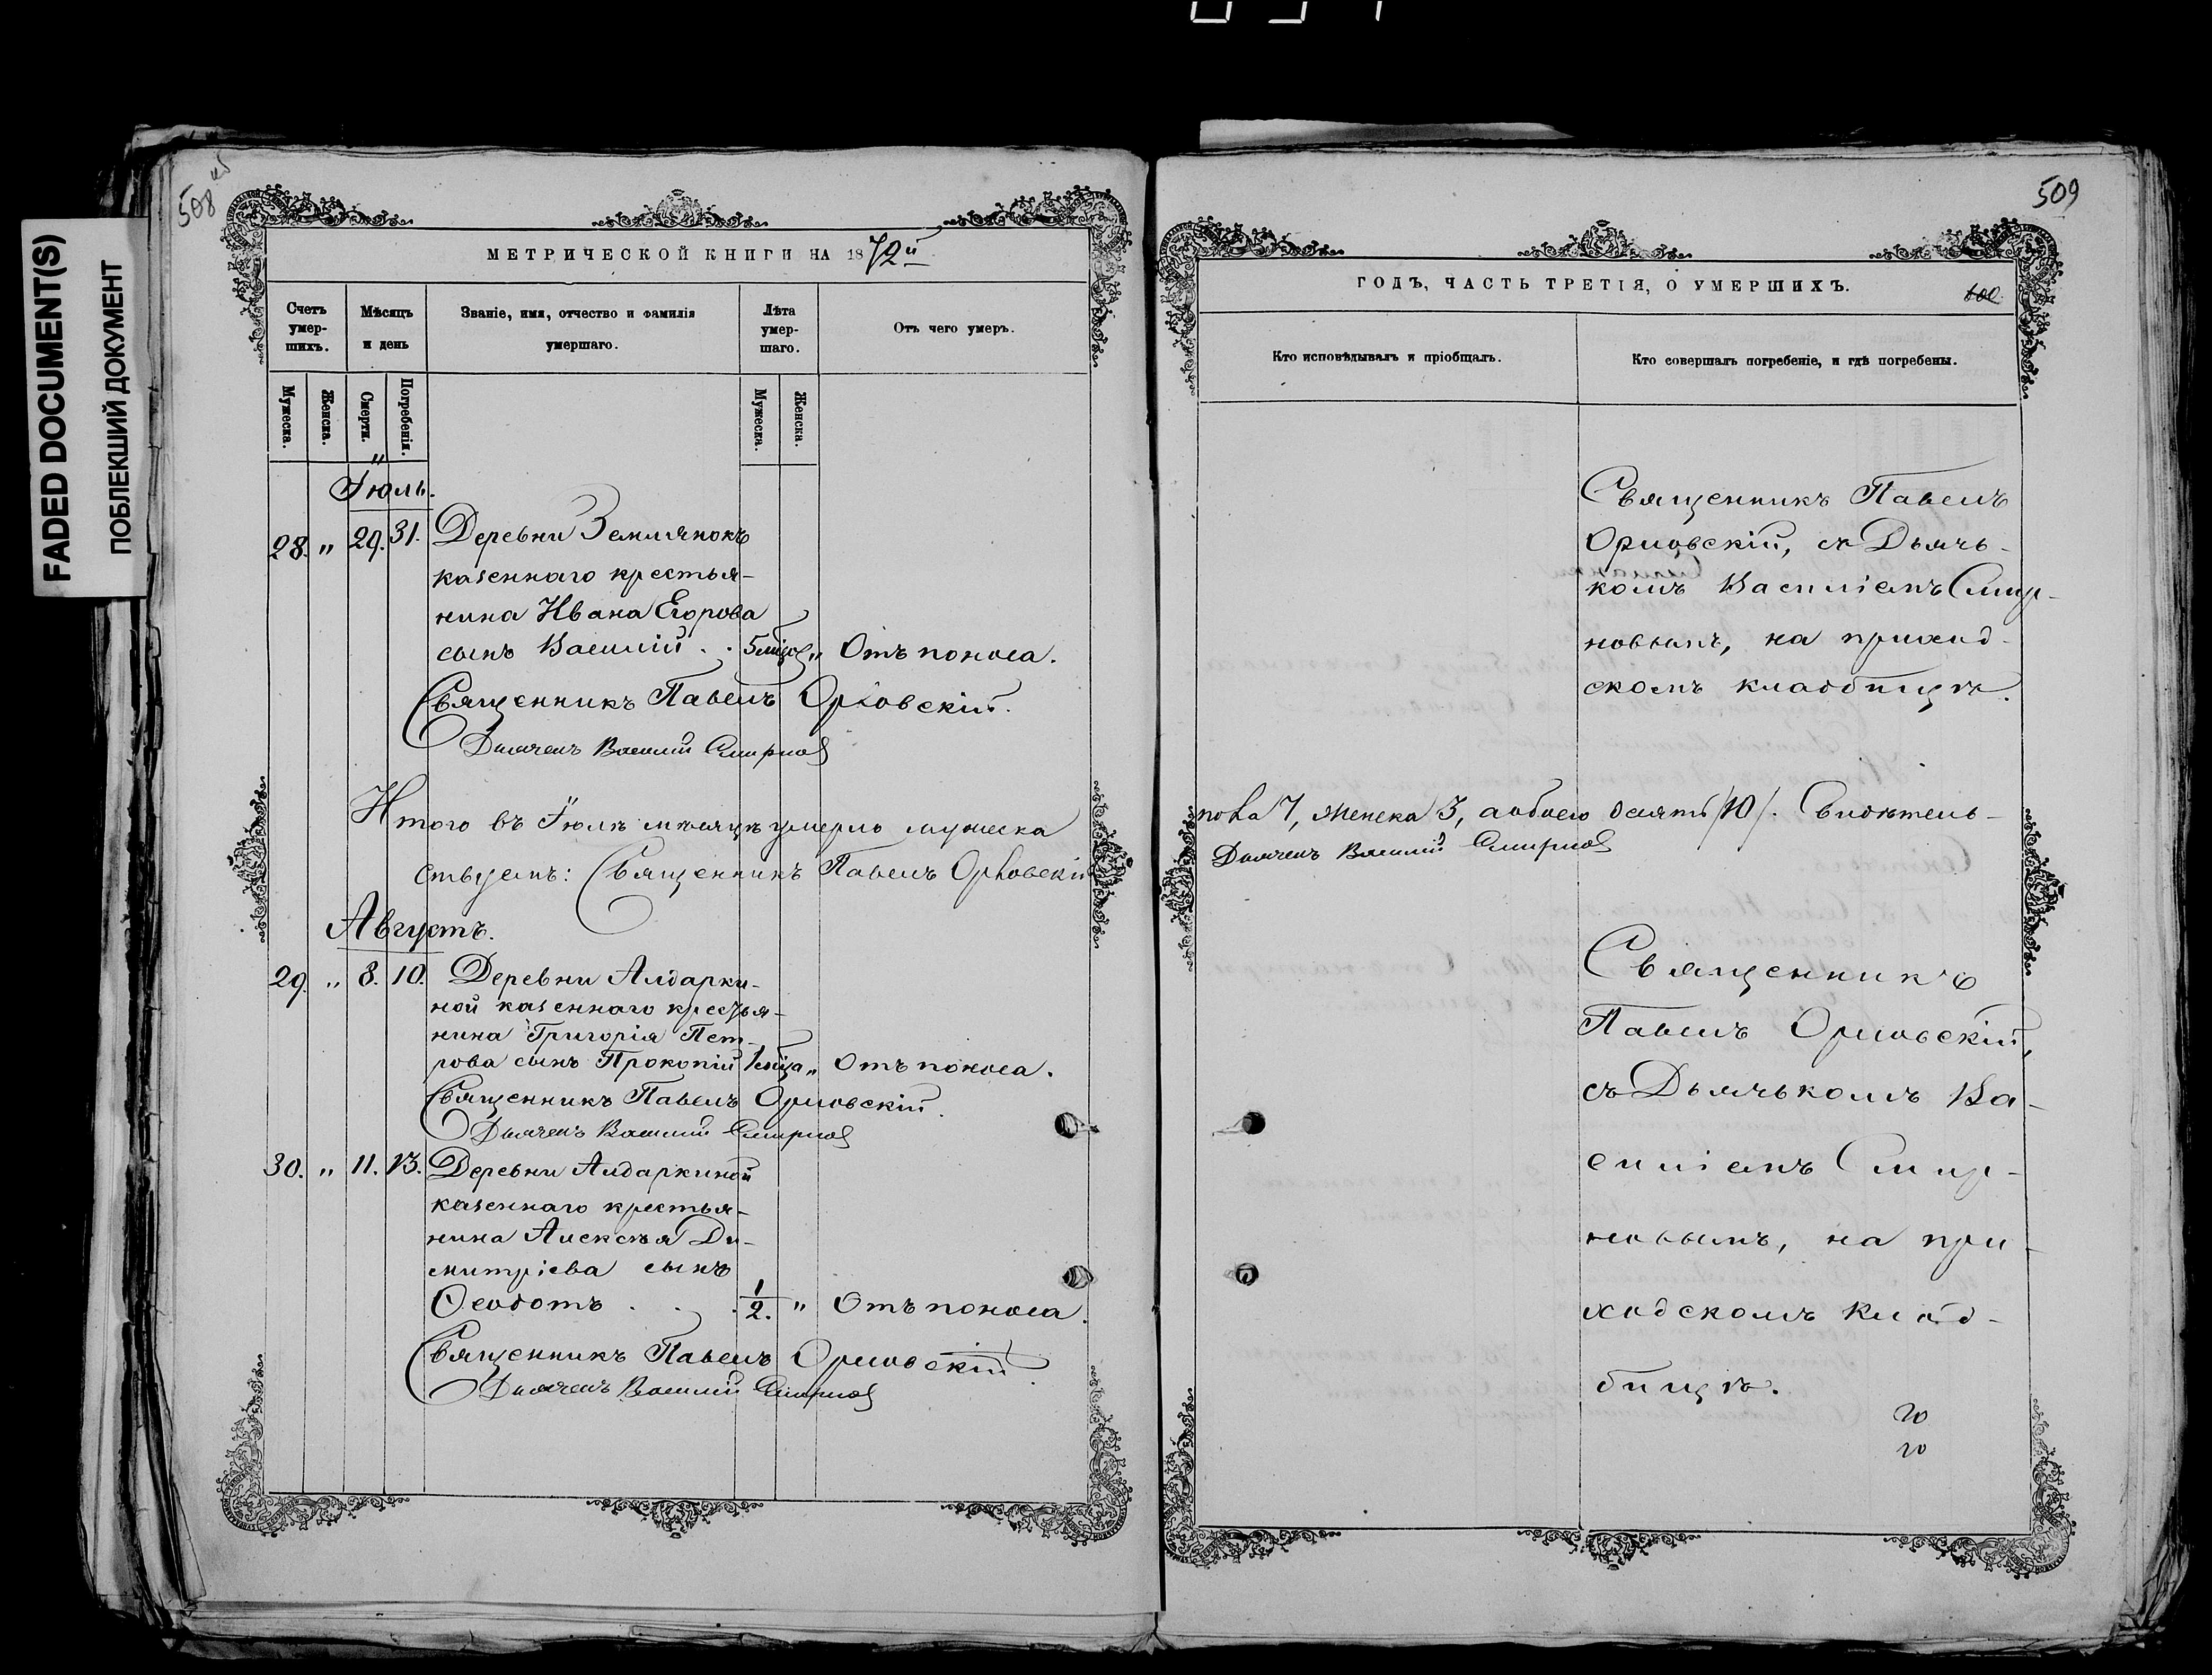 FADED DOCUMENT(S)
ПОБЛЕКШИЙ ДОКУМЕНТ
508
МЕТРИЧЕСКОЙ КНИГИ НА 1872й
Счетъ умер-шихъ.
Мѣсяцъ и день
Званіе, имя, отчество и фамилія умершаго.
Лѣта умер-шаго.
Отъ чего умеръ.
Мужеска.
Женска.
Смерти.
Погребенія.
Мужеска.
Женска.
Іюль.
28. " 29. 31. Деревни Землянокъ
казеннаго крестья-
нина Ивана Егорова
сынъ Василій . . 5 мцов " Отъ поноса.
Священникъ Павелъ Орловскій.
Дьячекъ Василий Смирнов
Итого въ Іюлѣ мѣсяцѣ умерло мужеска
ствуемъ: Священникъ Павелъ Орловскій
Августъ.
29. " 8. 10. Деревни Алдарки-
ной казеннаго крестья-
нина Григорія Пет-
рова сынъ Прокопій 1 мца " Отъ поноса.
Священникъ Павелъ Орловскій.
Дьячекъ Василий Смирнов
30. " 11. 13. Деревни Алдаркиной
казеннаго крестья-
нина Алексѣя Ди-
митріева сынъ
Ѳеодотъ . . . 1/2. " Отъ поноса.
Священникъ Павелъ Орловскій.
Дьячекъ Василий Смирнов
509
ГОДЪ, ЧАСТЬ ТРЕТІЯ, О УМЕРШИХЪ.
100.
Кто исповѣдывалъ и пріобщалъ.
Кто совершалъ погребеніе, и гдѣ погребены.
Священникъ Павелъ
Орловскій, съ Дьячь-
комъ Василіемъ Смир-
новымъ, на приход-
скомъ кладбищѣ.
пола 7, женска 3, а обоего десять /10/. Свидѣтель-
Дьячекъ Василий Смирнов
Священникъ
Павелъ Орловскій,
съ Дьячькомъ Ва-
силіемъ Смир-
новымъ, на при-
ходскомъ клад-
бищѣ.